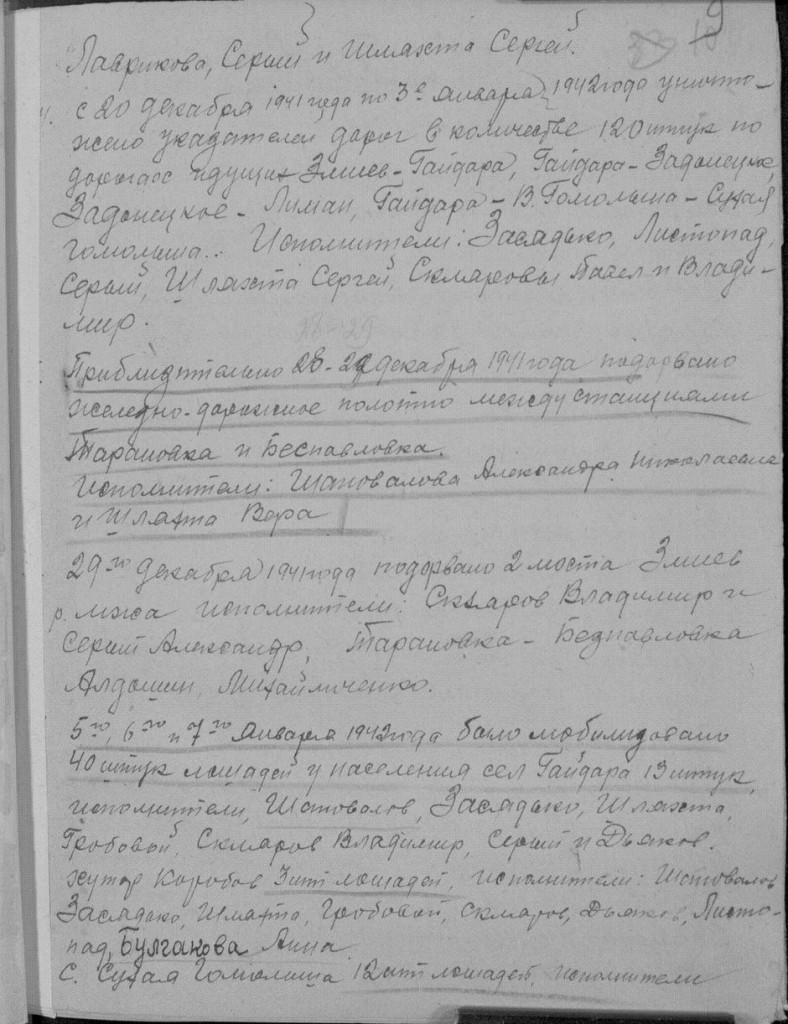 9
Лаврикова, Серый и Шляхта Сергей.
с 20 декабря 1941 года по 3е января 1942 года уничто-
жено указателей дорог в количестве 120 штук по
дорогах идущих Змиев - Гайдара, Гайдара - Задонецкое,
Задонецкое - Лиман, Гайдара - В. Гомольша - Сухая
Гомольша.. Исполнители: Засядько, Листопад,
Серый, Шляхта Сергей, Скляровы Павел и Влади-
мир.
Приблизительно 28-29 декабря 1941 года подорвано
железно-дорожное полотно между станциями
Тарановка и Беспаловка.
Исполнители: Шаповалова Александра Николаевна
и Шляхта Вера
29го декабря 1941 года подорвано 2 моста Змиев
р. Мжа исполнители: Скляров Владимир и
Серый Александр, Тарановка - Безпаловка
Алдошин, Михайличенко.
5го, 6го и 7го января 1942 года было мобилизовано
40 штук лошадей у населения сел Гайдара 13 штук,
исполнители, Шаповалов, Засядько, Шляхта,
Гробовой, Скляров Владимир, Серый и Дьяков.
хутор Коробов 3 шт лошадей, исполнители: Шаповалов
Засядько, Шляхта, Гробовой, Скляров, Дьяков, Листо-
пад, Булгакова Анна
с. Сухая Гомольша 12 шт лошадей, исполнители